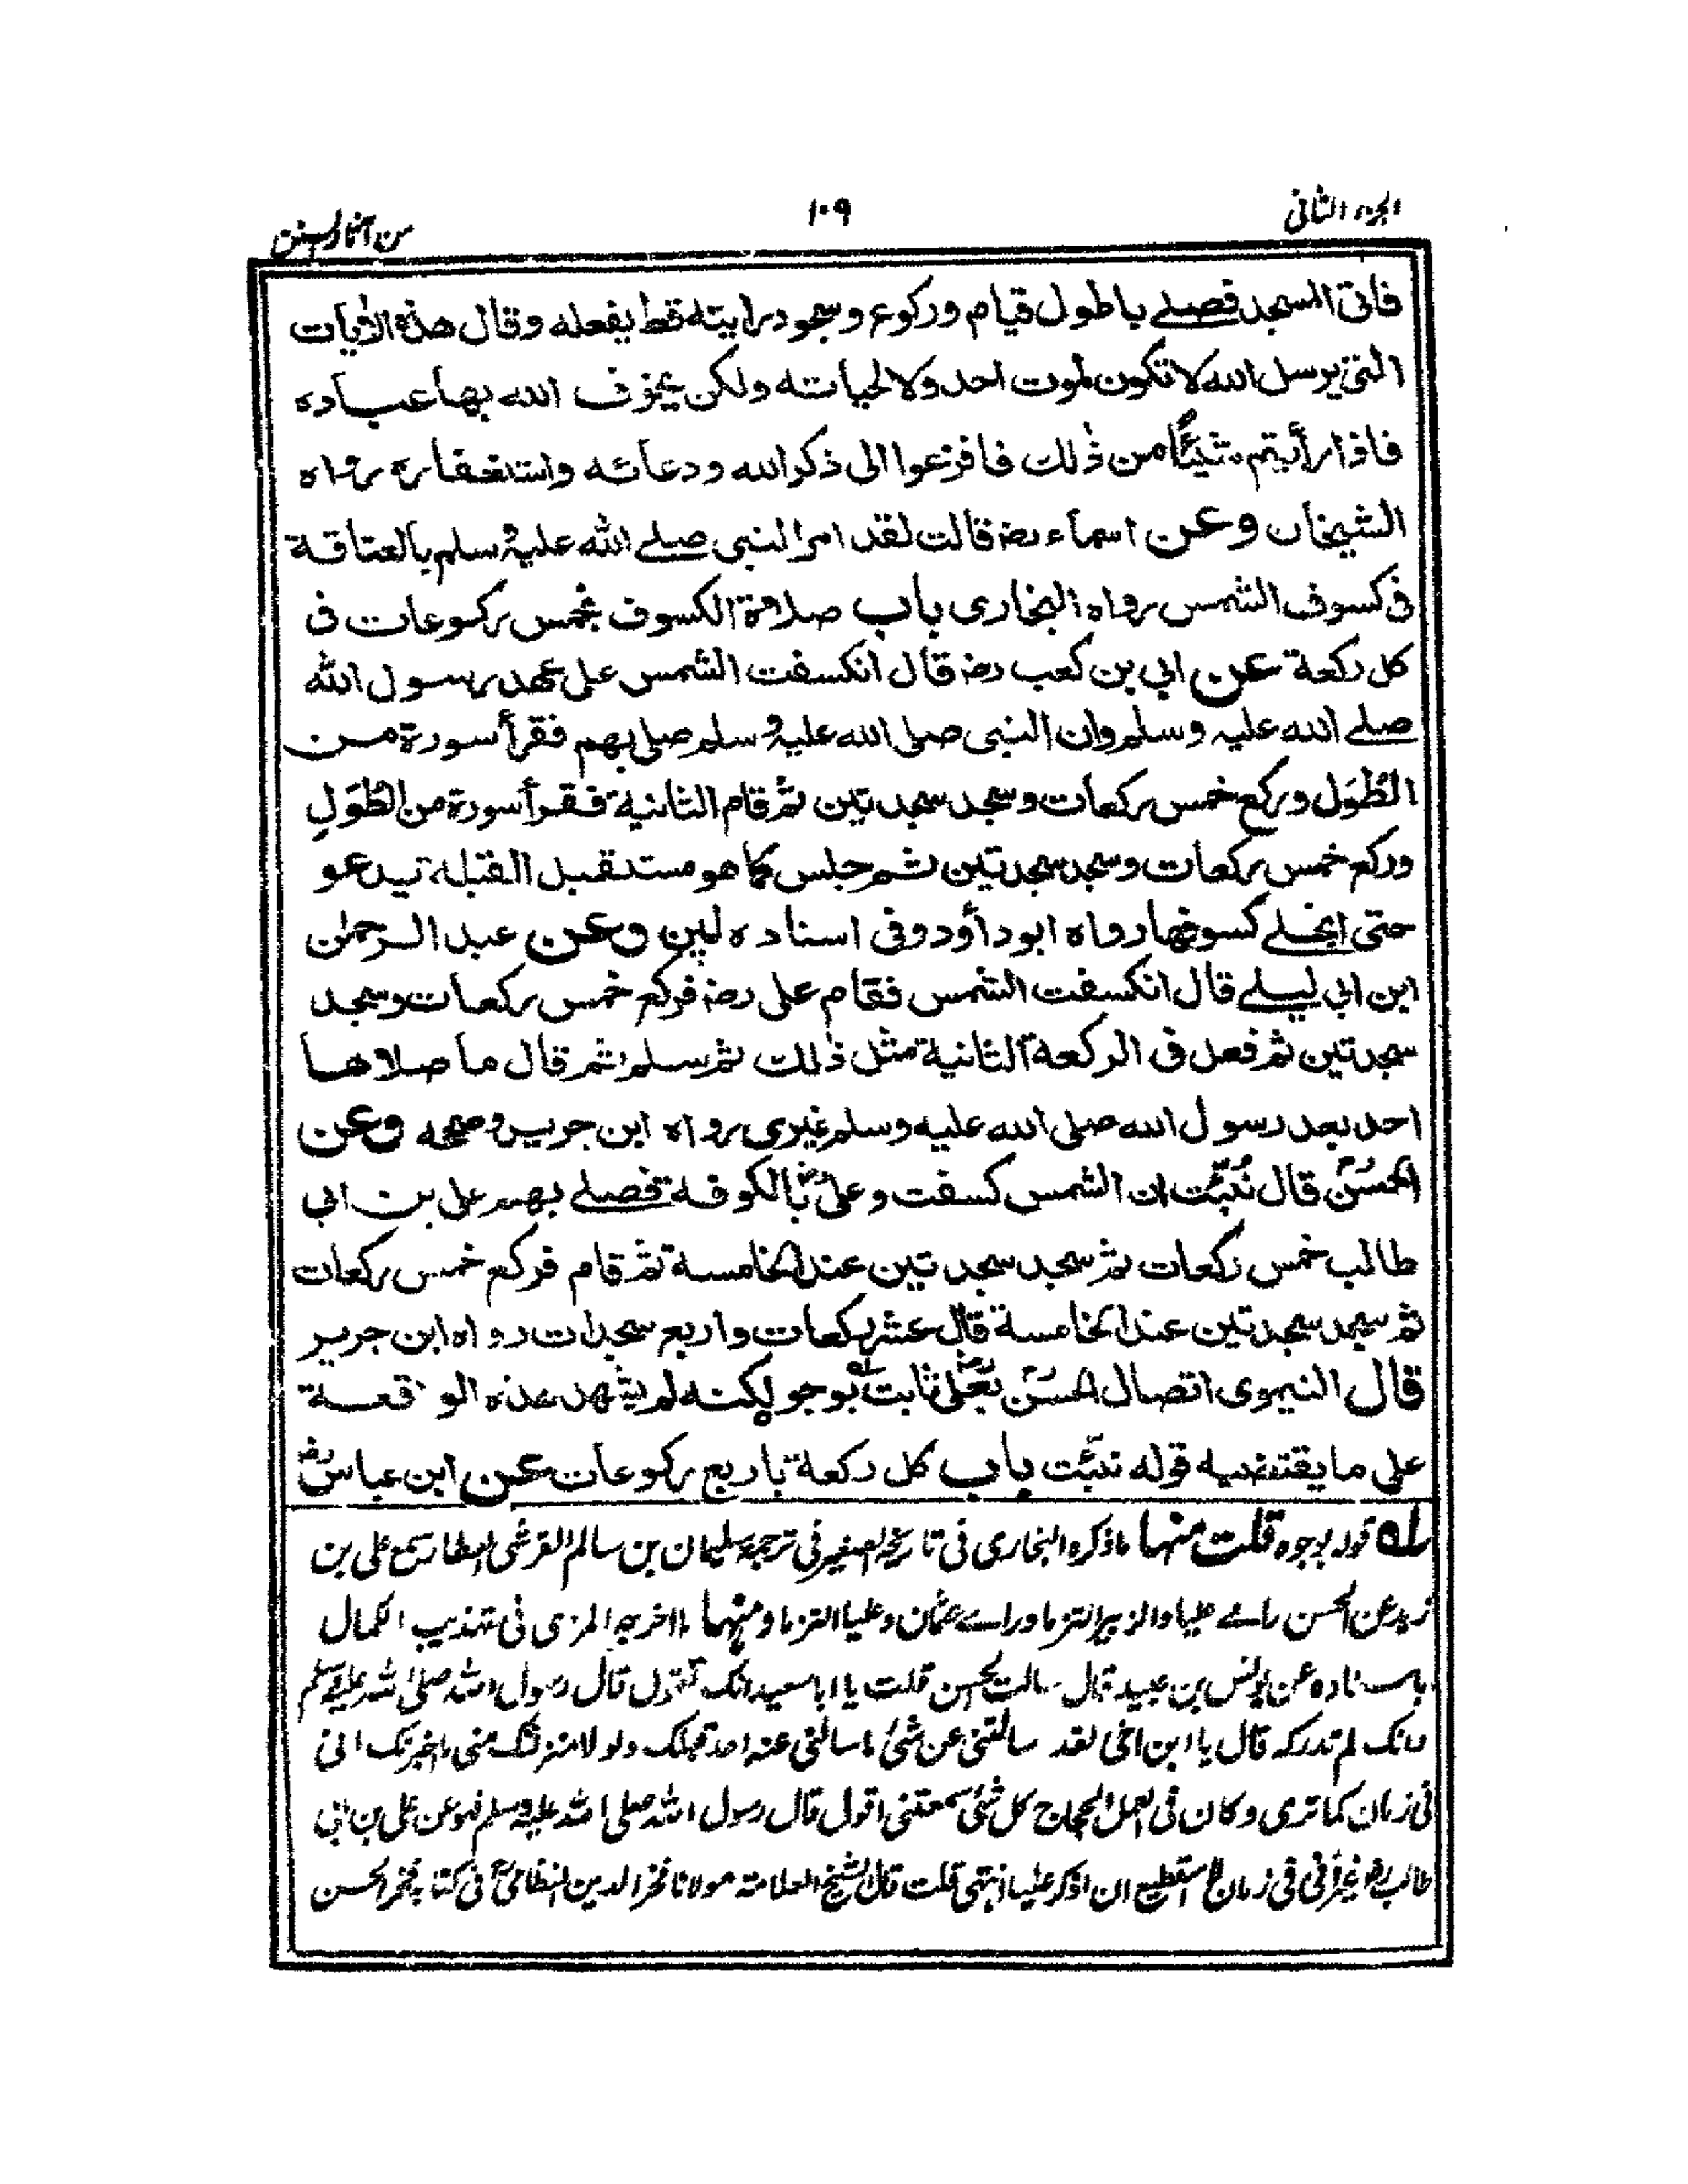 الجزء الثانی
١٠٩
من آثار السنن
فاتی المسجد فصلے باطول قیام ورکوع وسجود رایته قط یفعله وقال هذه الاٰیات
التی یرسل الله لا تکون لموت احد ولا لحیاته ولکن یخوف الله بها عباده
فاذا رأیتم شیئًا من ذٰلك فافزعوا الی ذکر الله ودعائه واستغفاره رواه
الشیخان وعن اسماء رضـ قالت لقد امر النبی صلے الله علیه وسلم بالعتاقة
فی کسوف الشمس رواه البخاری باب صلاة الکسوف بخمس رکوعات فی
کل رکعة عن ابی بن کعب رضـ قال انکسفت الشمس علی عهد رسول الله
صلے الله علیه وسلم وان النبی صلی الله علیه وسلم صلی بهم فقرأ سورة من
الطُوَل ورکع خمس رکعات وسجد سجدتین ثم قام الثانیة فقرأ سورة من الطُوَلِ
ورکع خمس رکعات وسجد سجدتین ثم جلس کما هو مستقبل القبلة یدعو
حتی انجلے کسوفها رواه ابو داؤد وفی اسناده لین وعن عبد الرحمٰن
ابن ابی لیلے قال انکسفت الشمس فقام علی رضـ فرکع خمس رکعات وسجد
سجدتین ثم فعل فی الرکعة الثانیة مثل ذٰلك ثم سلم ثم قال ما صلاها
احد بعد رسول الله صلی الله علیه وسلم غیری رواه ابن جریر وصححه وعن
الحسنؒ قال نُبِّئت ان الشمس کسفت وعلیؓ بالکوفة فصلے بهم علی بن ابی
طالب خمس رکعات ثم سجد سجدتین عند الخامسة ثم قام فرکع خمس رکعات
ثم سجد سجدتین عند الخامسة قال عشر رکعات واربع سجدات رواه ابن جریر
قال النیموی اتصال الحسنؒ بعلیؓ ثابت بوجوه لکنه لم یشهد هذه الواقعة
علی ما یقتضیه قوله نبّئت باب کل رکعة باربع رکوعات عن ابن عباسؓ
لہ قوله بوجوه قلت منها ما ذکره البخاری فی تاریخه الصغیر فی ترجمة سلیمان بن سالم القرشی العطار سمع علی بن
زید عن الحسن راے علیا والزبیر التزما وراے عثمان وعلیا التزما ومنها ما اخرجه المزی فی تهذیب الکمال
باسناده عن یونس بن عبید قال سالت الحسن قلت یا ابا سعید انک تقول قال رسول الله صلی الله علیه وسلم
وانک لم تدرکه قال یا ابن اخی لقد سالتنی عن شئ ما سالنی عنه احد قبلک ولولا منزلتک منی ما اخبرتک انی
فی زمان کما تری وکان فی عمل الحجاج کل شئ سمعتنی اقول قال رسول الله صلی الله علیه وسلم فهو عن علی بن ابی
طالب رضـ غیر انی فی زمان لا استطیع ان اذکر علیا انتهی قلت قال الشیخ العلامة مولانا فخر الدین النظامیؒ فی کتابه فخر الحسن